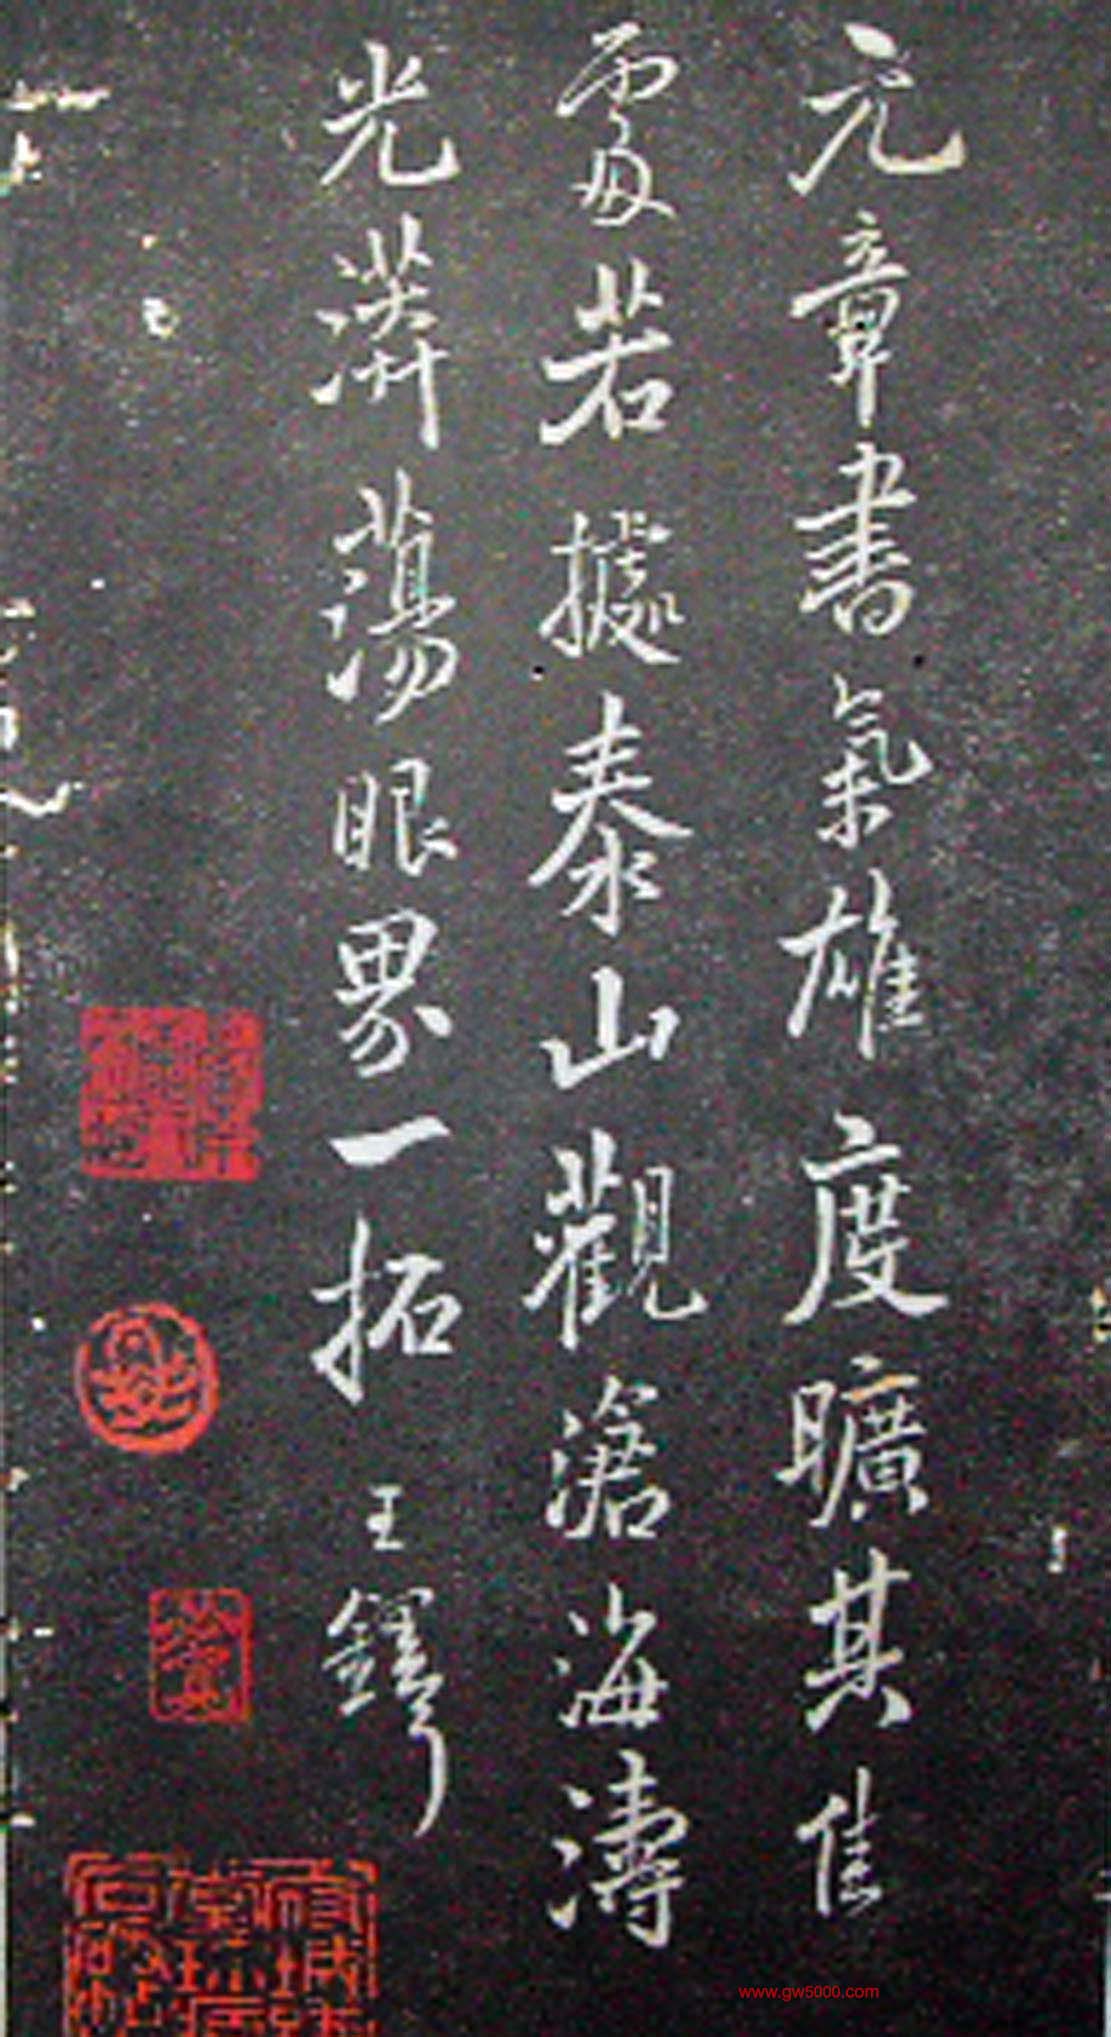 元章書氣雄度曠其佳
處若據泰山觀滄海濤
光漭蕩眼界一拓
王鐸
www.gw5000.com